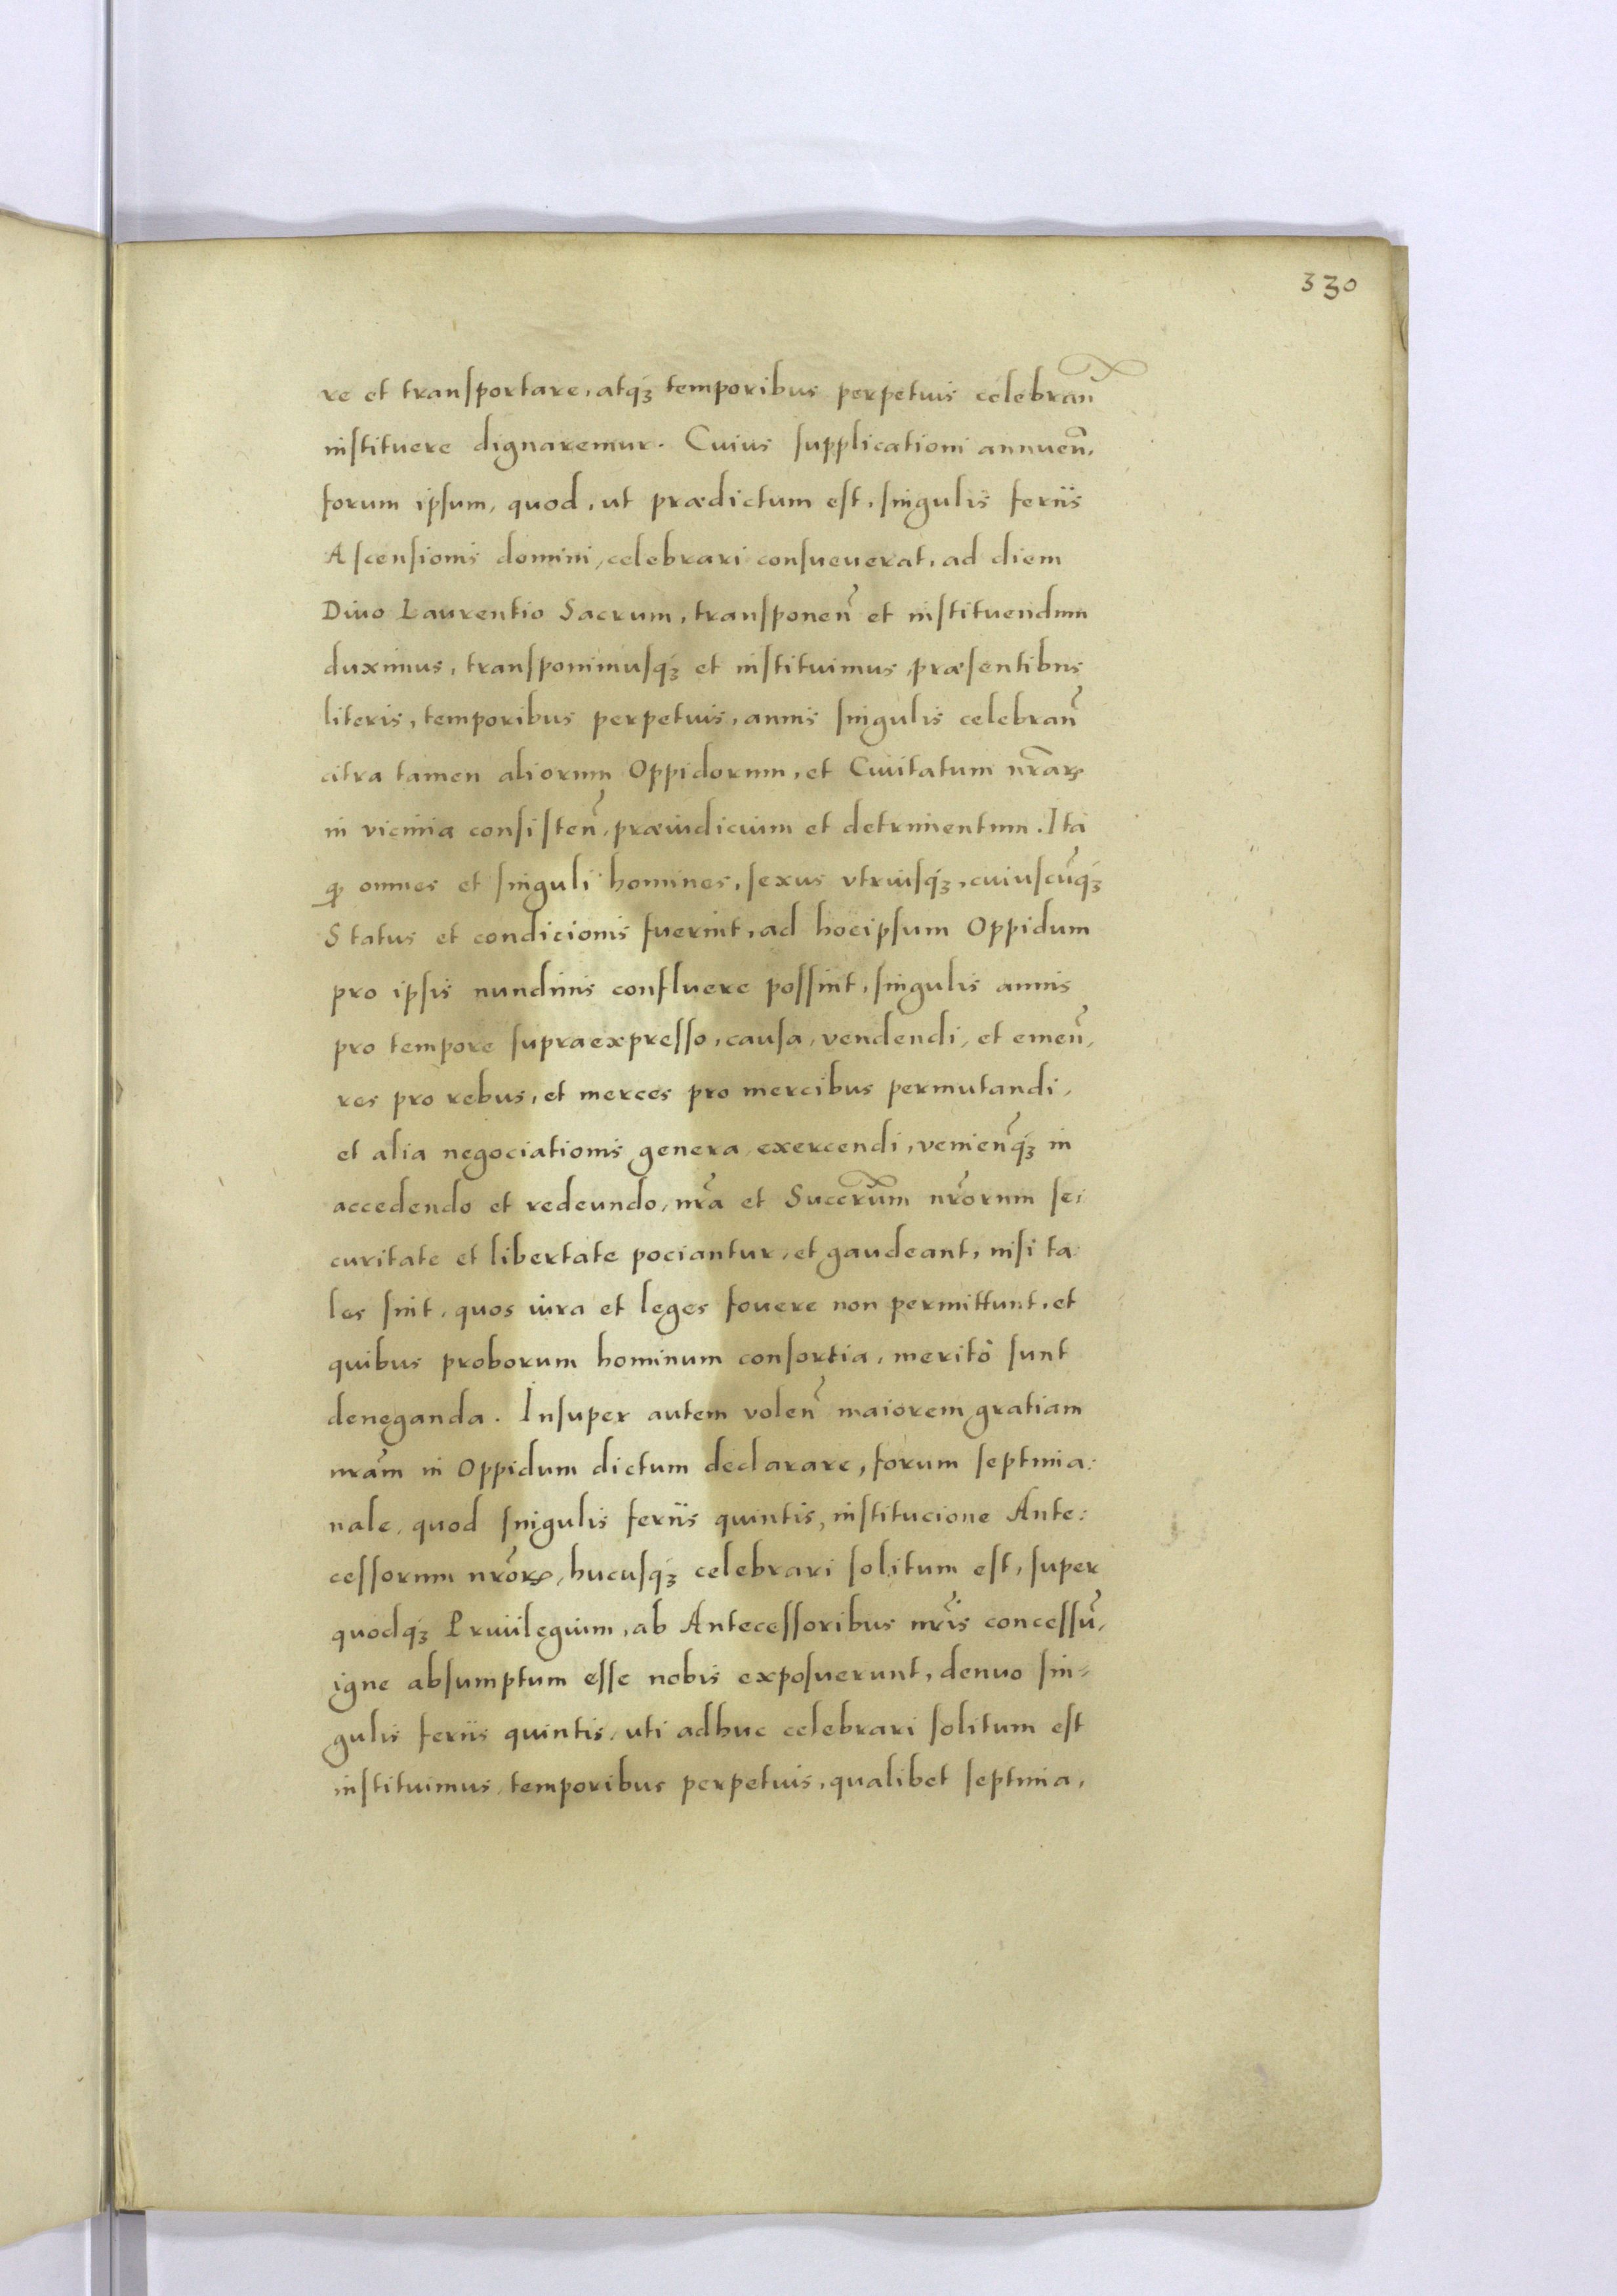 330
re et transportare, atq3 temporibus perpetuis celebrañ
instituere dignaremur. Cuius supplicationi annueñ,
forum ipsum, quod, ut prædictum est, singulis feriis
Ascensionis domini, celebrari consueuerat, ad diem
Diuo Laurentio Sacrum, transponeñ et instituendum
duximus, transponimusq3 et instituimus, præsentibus
literis, temporibus perpetuis, annis singulis celebrañ
citra tamen aliorum Oppidorum, et Ciuitatum nr̃arꝝ
in vicinia consisteñ, præiudicium et detrimentum. Ita
ꝙ omnes et singuli homines, sexus vtriusq3, cuiuscũq3
Status et condicionis fuerint, ad hocipsum Oppidum
pro ipsis nundinis confluere possint, singulis annis
pro tempore supraexpresso, causa, vendendi, et emeñ,
res pro rebus, et merces pro mercibus permutandi,
et alia negociationis genera, exercendi, venieñq3 in
accedendo et redeundo, nr̃a et Succr̃um nr̃orum se:
curitate et libertate pociantur, et gaudeant, nisi ta:
les sint, quos iura et leges fouere non permittunt, et
quibus proborum hominum consortia, meritò sunt
deneganda. Insuper autem voleñ maiorem gratiam
nr̃am in Oppidum dictum declarare, forum septima:
nale, quod singulis feriis quintis, institucione Ante:
cessorum nr̃orꝝ, hucusq3 celebrari solitum est, super
quodq3 Priuilegium, ab Antecessoribus nr̃is concessũ,
igne absumptum esse nobis exposuerunt, denuo sin=
gulis feriis quintis, uti adhuc celebrari solitum est
instituimus, temporibus perpetuis, qualibet septima,